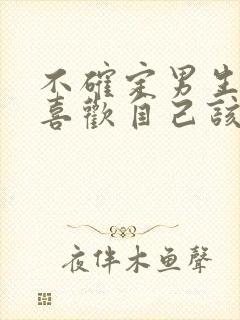 不確定男生
喜歡自己該
夜伴木鱼聲